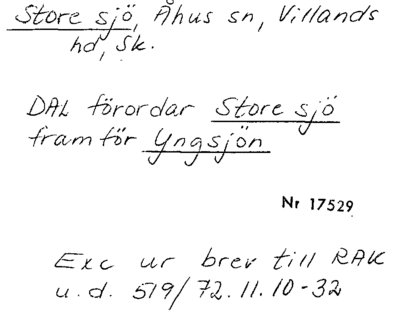 Store sjö, Åhus sn, Villands
hd, Sk.
DAL förordar Store sjö
framför Yngsjön
Nr 17529
Exc ur brev till RAK
u.d. 519/72.11.10-32